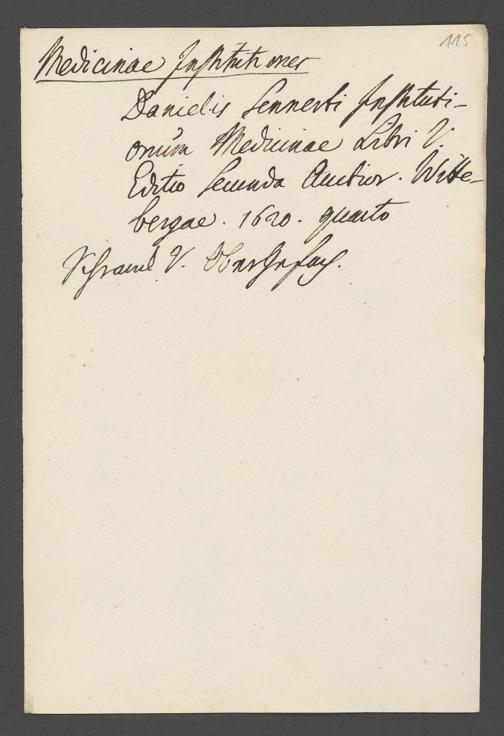 115
Medicinae Institutiones
Danielis Sennerti Instituti-
onum Medicinae Libri V
Editio Secunda Auctior. Witte-
bergae. 1620. quarto
Schrank V. Obers Fach.